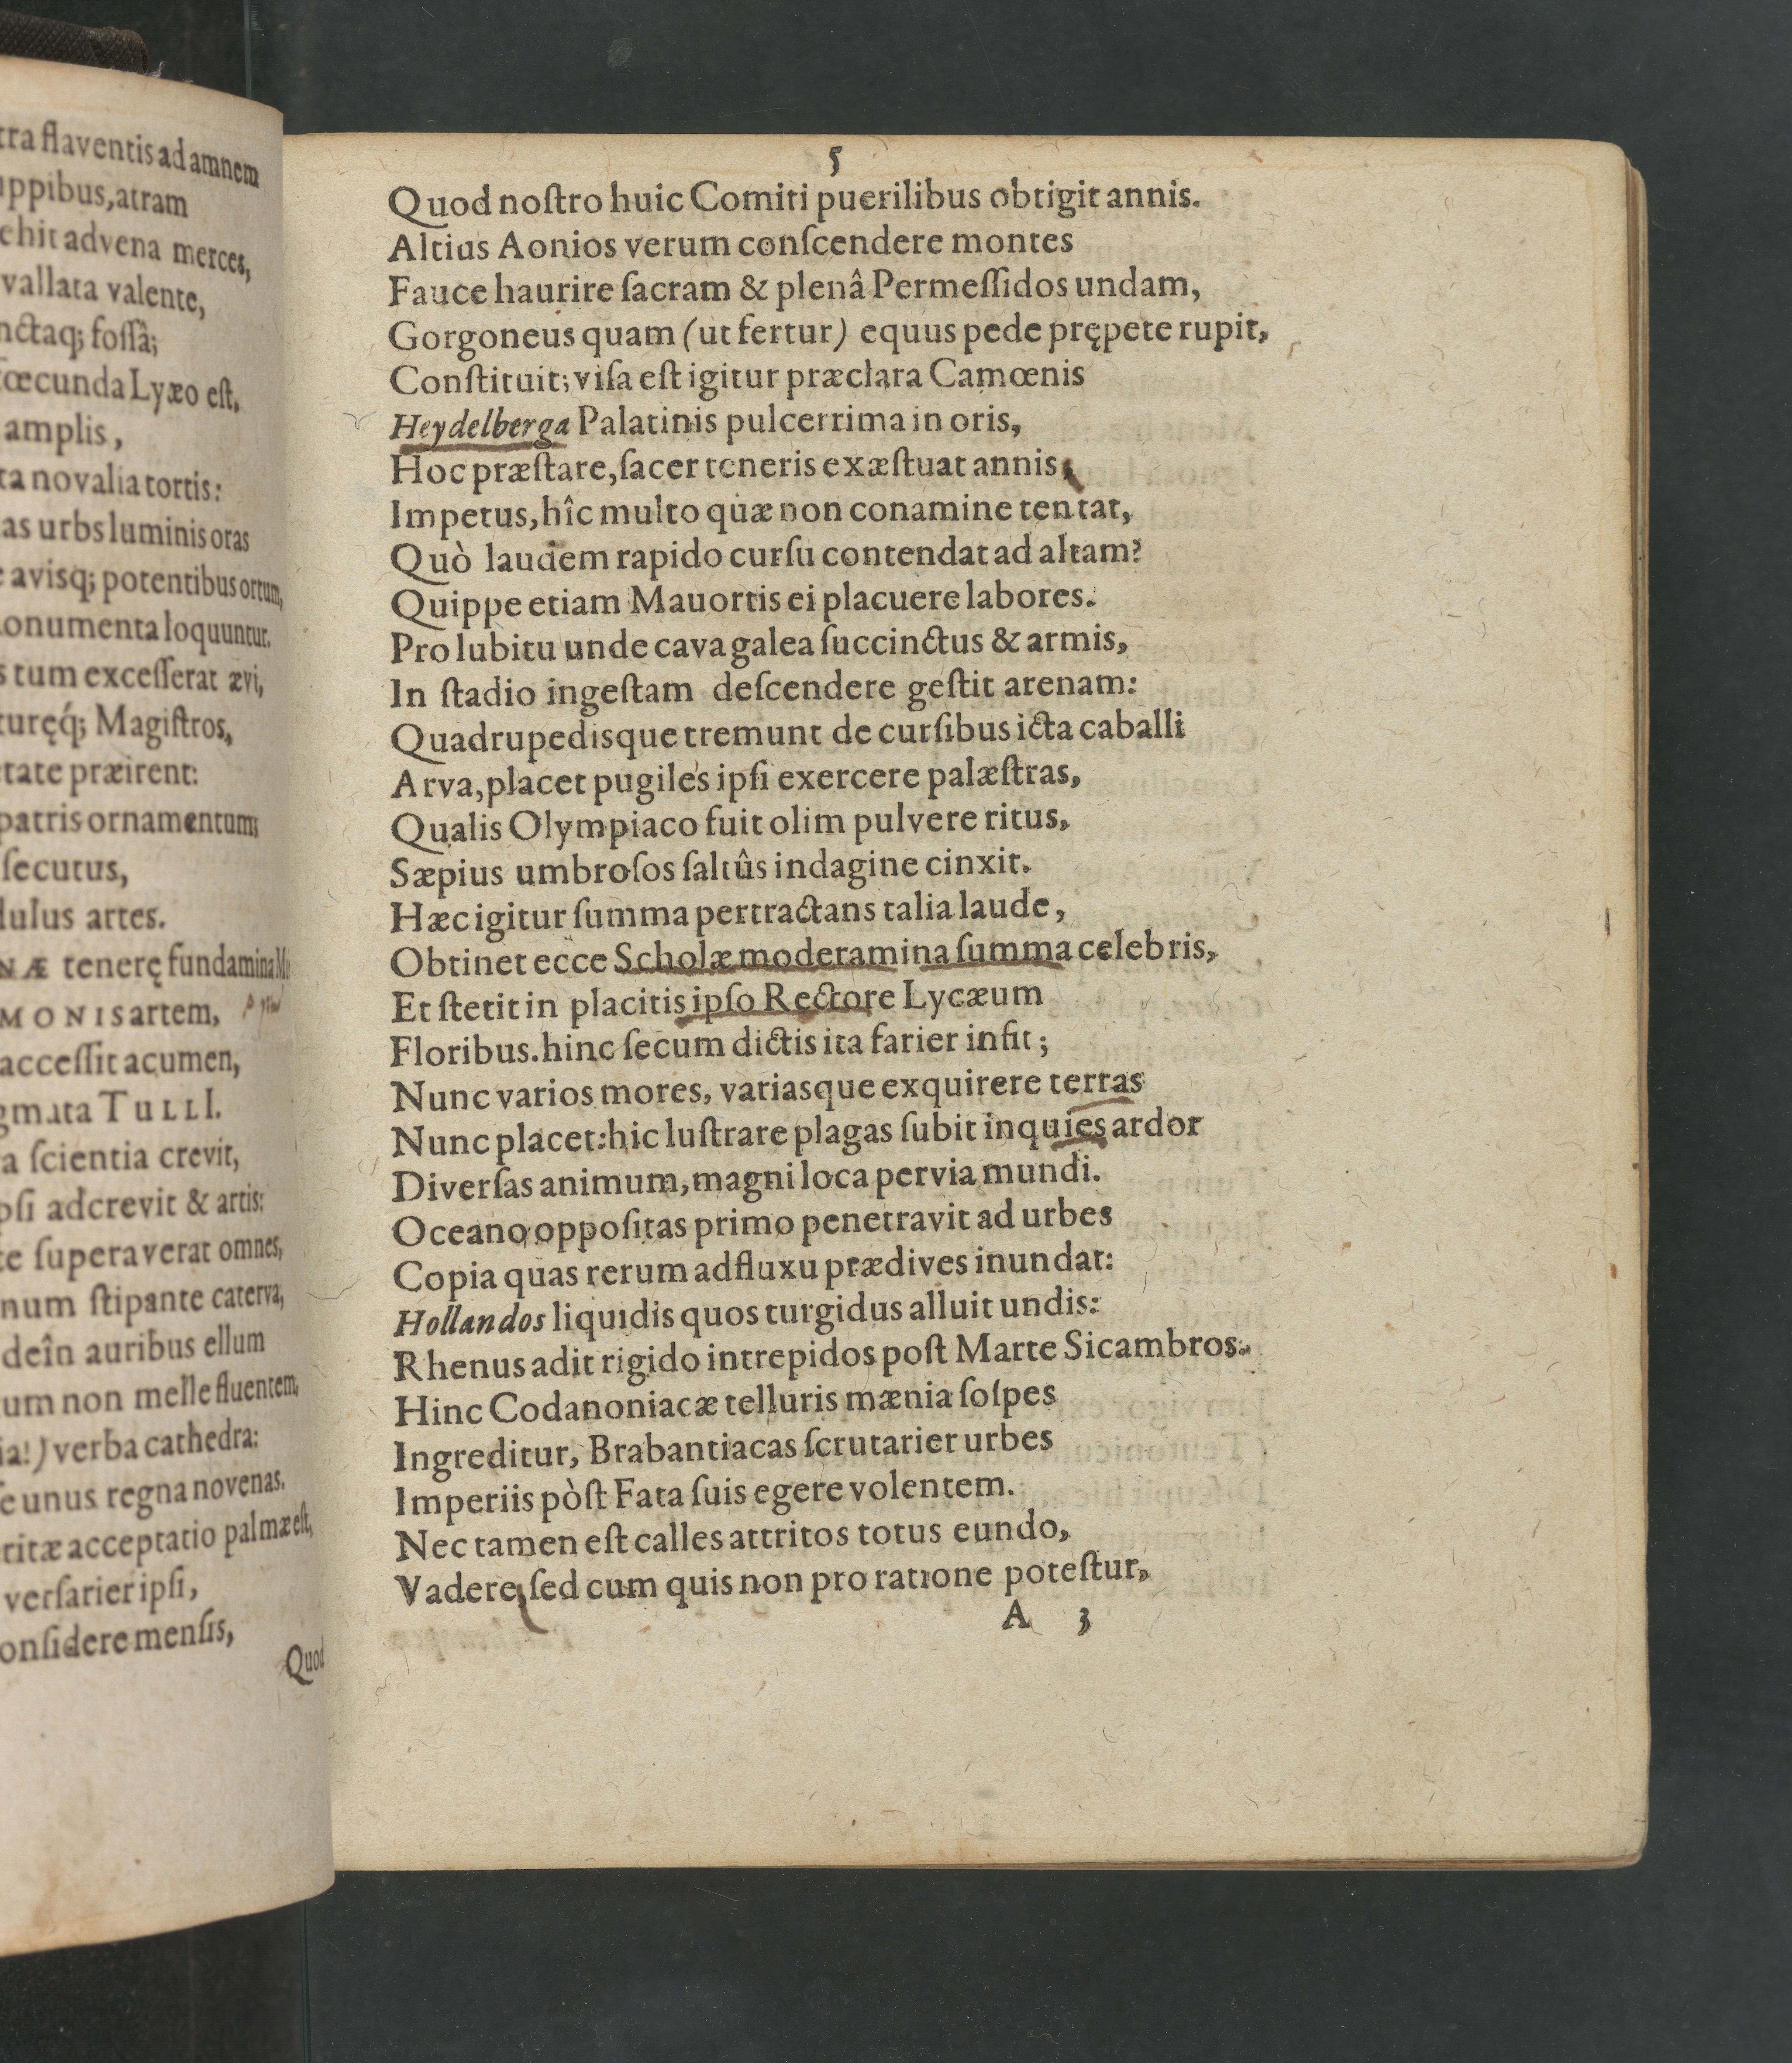 tra flaventis ad amnem
uppibus, atram
ehit advena merces,
vallata valente,
nctaq; fossâ;
fœcunda Lyæo est,
amplis,
ta novalia tortis:
as urbs luminis oras
e avisq; potentibus ortum,
onumenta loquuntur.
s tum excesserat ævi,
turęq́; Magistros,
etate præirent:
patris ornamentum;
secutus,
dulus artes.
NÆ tenerę fundamina
MONIS artem,
accessit acumen,
gmata TULLI.
a scientia crevit,
psi adcrevit & artis:
te superaverat omnes,
num stipante caterva,
deîn auribus ellum
um non melle fluentem,
ia!) verba cathedra:
se unus regna novenas.
ritæ acceptatio palmæ est,
versarier ipsi,
onsidere mensis,
Quod
5
Quod noſtro huic Comiti puerilibus obtigit annis.
Altius Aonios verum conſcendere montes
Fauce haurire ſacram & plenâ Permeſſidos undam,
Gorgoneus quam (ut fertur) equus pede prępete rupit,
Conſtituit; viſa eſt igitur præclara Camœnis
Heydelberga Palatinis pulcerrima in oris,
Hoc præſtare, ſacer teneris exæſtuat annis,
Impetus, hîc multo quæ non conamine tentat,
Quò laudem rapido curſu contendat ad altam?
Quippe etiam Mauortis ei placuere labores.
Pro lubitu unde cava galea ſuccinctus & armis,
In ſtadio ingeſtam deſcendere geſtit arenam:
Quadrupedisque tremunt de curſibus icta caballi
Arva, placet pugiles ipſi exercere palæſtras,
Qualis Olympiaco fuit olim pulvere ritus,
Sæpius umbroſos ſaltûs indagine cinxit.
Hæc igitur ſumma pertractans talia laude,
Obtinet ecce Scholæ moderamina ſumma celebris,
Et ſtetit in placitis ipſo Rectore Lycæum
Floribus. hinc ſecum dictis ita farier infit;
Nunc varios mores, variasque exquirere terras
Nunc placet: hic luſtrare plagas ſubit inquies ardor
Diverſas animum, magni loca pervia mundi.
Oceano oppoſitas primo penetravit ad urbes
Copia quas rerum adfluxu prædives inundat:
Hollandos liquidis quos turgidus alluit undis:
Rhenus adit rigido intrepidos poſt Marte Sicambros.
Hinc Codanoniacæ telluris mænia ſoſpes
Ingreditur, Brabantiacas ſcrutarier urbes
Imperiis pòſt Fata ſuis egere volentem.
Nec tamen eſt calles attritos totus eundo,
Vadere, ſed cum quis non pro ratione poteſtur,
A 3